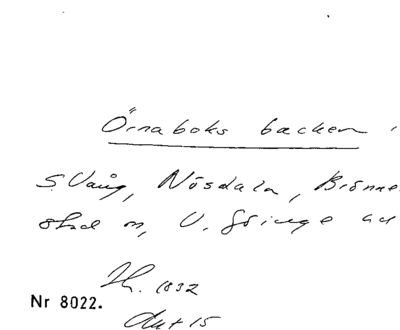 Örnaboks backen i
S. Vång, Nösdala, Brönne-
stad sn, V. Göinge hd
1832
Nr 8022.
Akt 15